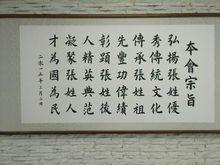 本會宗旨
弘揚張姓優
秀傳統文化
傳承張姓祖
先豐功偉績
彰顯張姓後
人精英典范
凝聚張姓人
才為國為民
二〇一二年三月八日